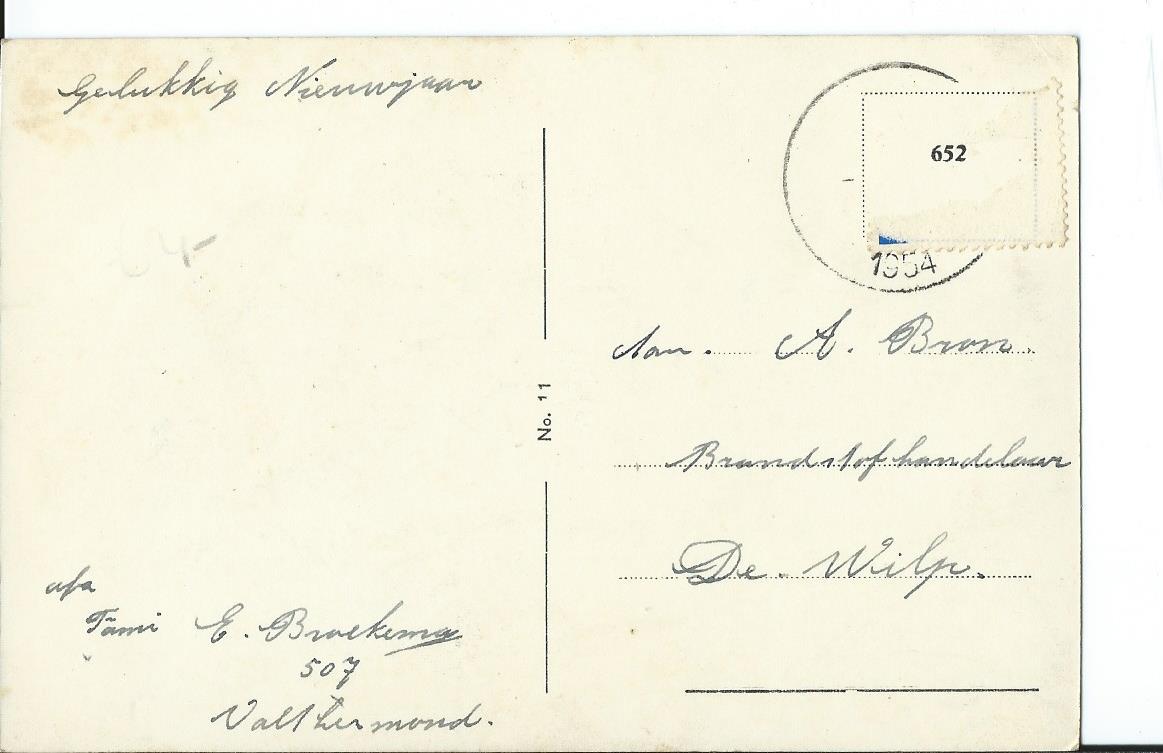 Gelukkig Nieuwjaar
652
1954
Aan. A. Bron.
Brandstofhandelaar
De. Wilp.
No. 11
afz
Fami E. Broekema
507
Valthermond.